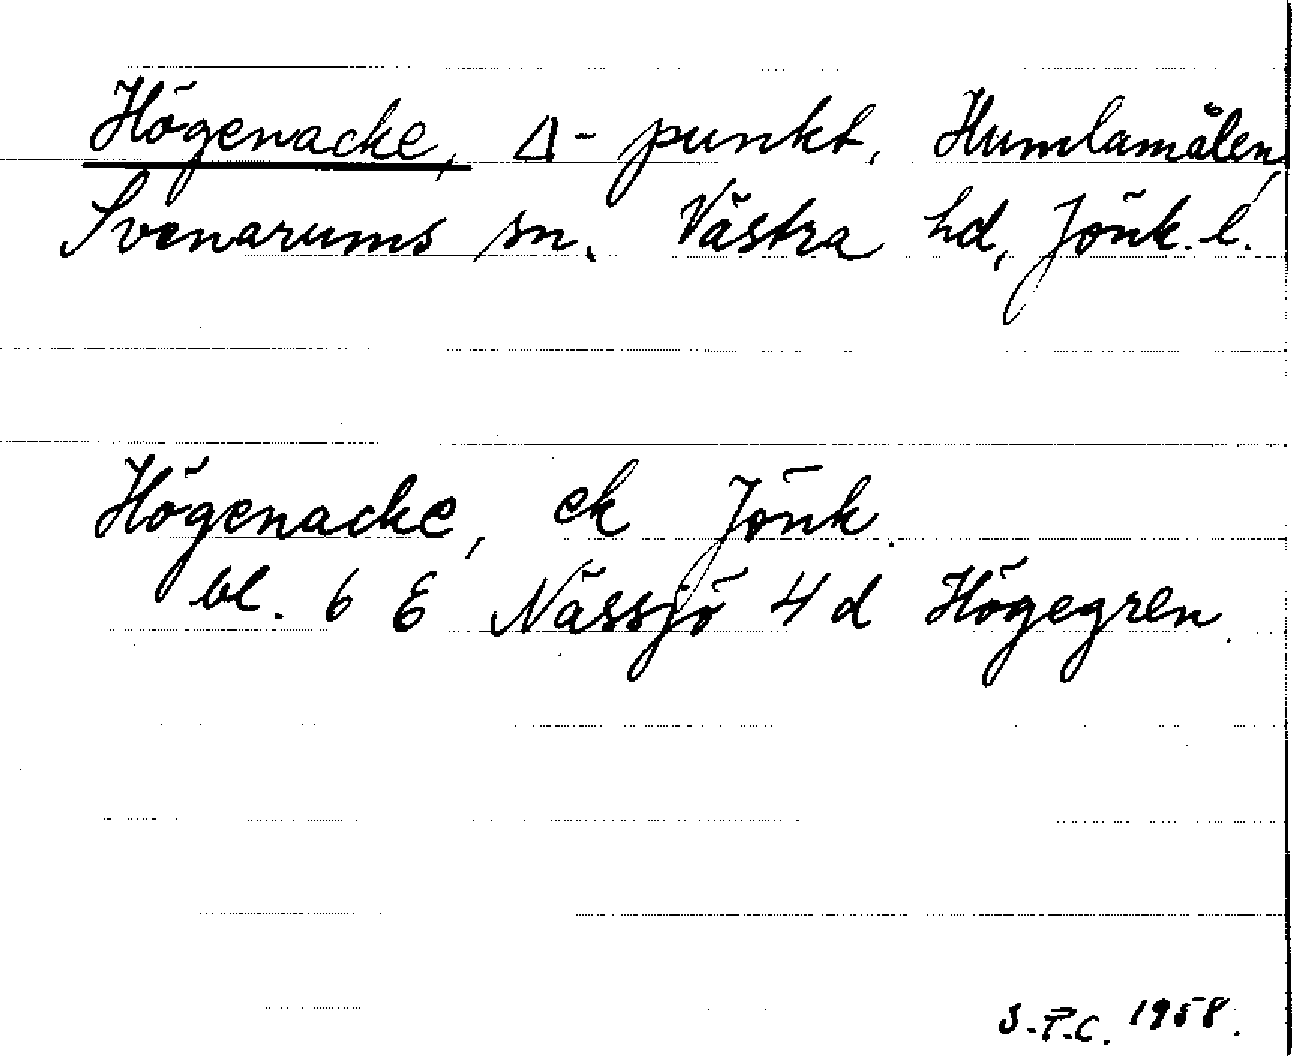 Högenacke, Δ-punkt, Humlamålen,
Svenarums sn. Västra hd, Jönk. l.
Högenacke, ek Jönk.
bl. 6 E Nässjö 4 d Högegren.
S.P.C. 1958.